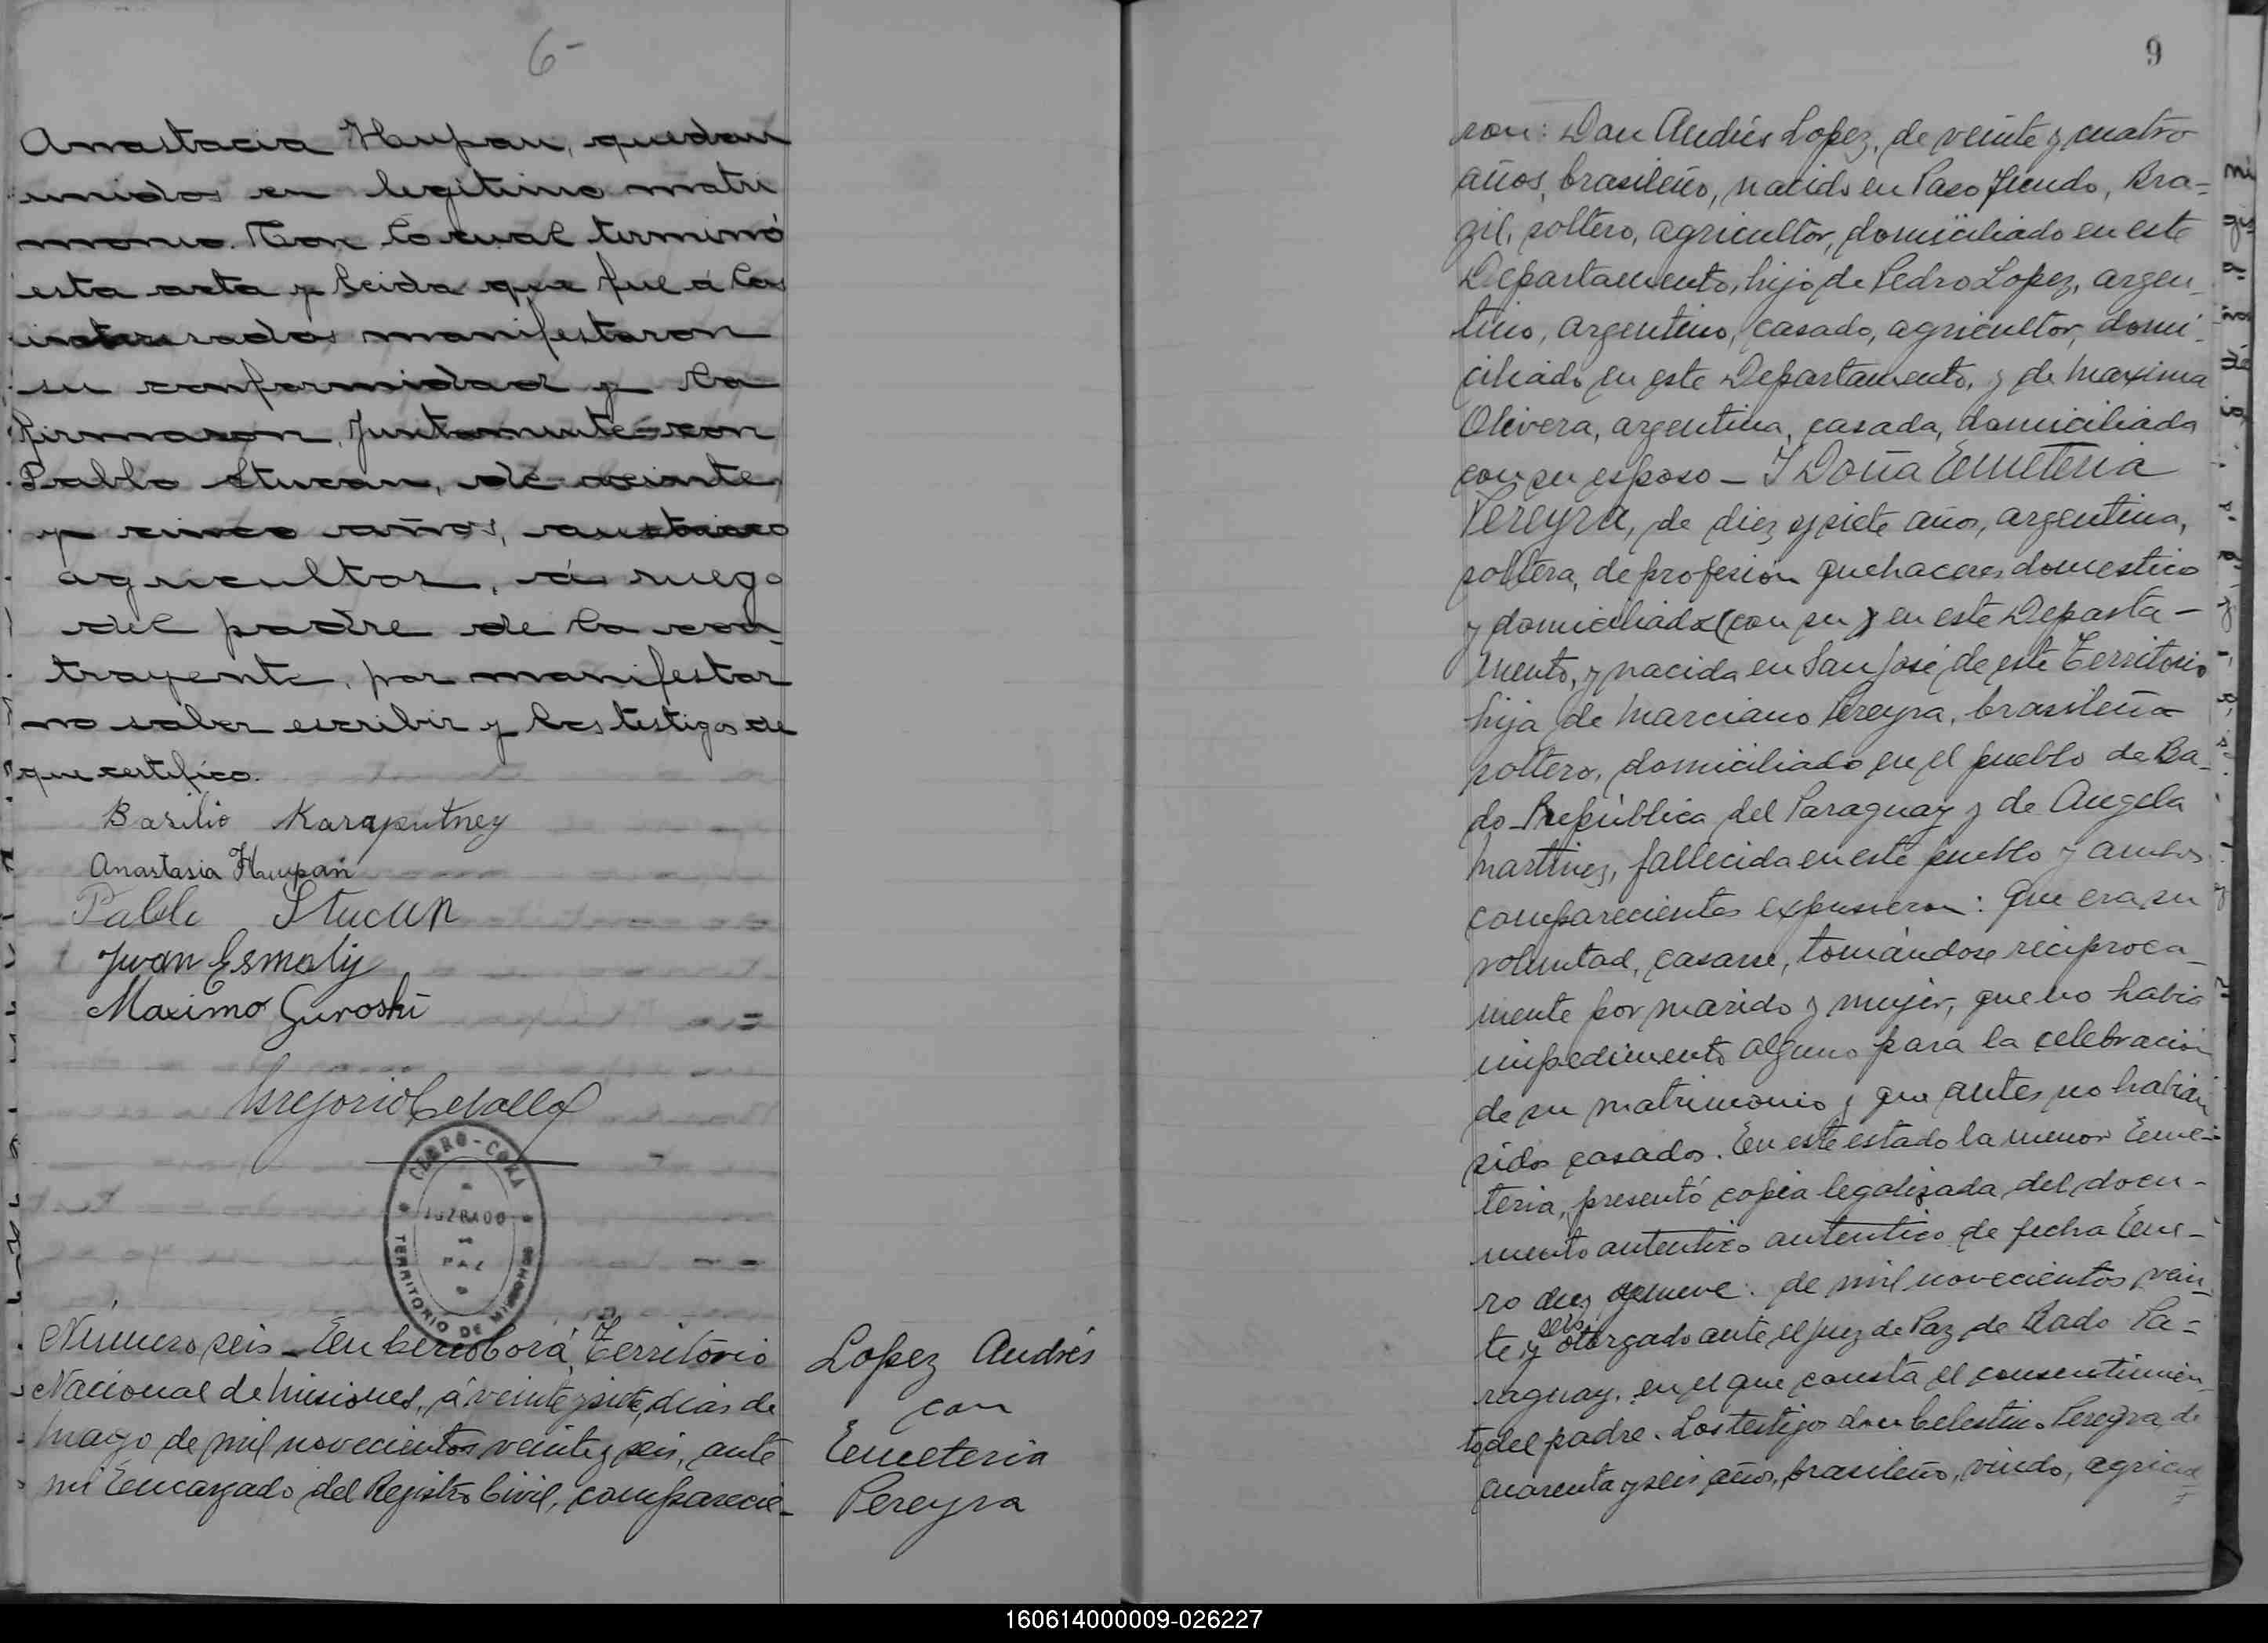 6-
Anastacia Haupan, quedan
unidos en legitimo matri
monio. Con lo cual terminó
esta acta y leida que fué á los
interesados manifestaron
su conformidad y la
firmaron, juntamente con
Pablo Stucan, de veinte
y cinco años, austriaco
agricultor, á ruego
del padre de la con-
trayente, por manifestar
no saber escribir y los testigos de
que certifico.
Basilio Karaputney
Anastasia Haupan
Pablo Stucan
Juan Esmaly
Maximo Guroski
Gregorio
CERRO-CORA
JUZGADO
DE
PAZ
TERRITORIO DE MISIONES
Número seis - En Cerro Corá, Territorio
Nacional de Misiones, á veinte y siete, dias de
Mayo de mil novecientos veinte y seis, ante
mi Encargado del Registro Civil, comparecie-
Lopez Andrés
con
Emeteria
Pereyra
9
ron: Don Andrés Lopez, de veinte y cuatro
años, brasileño, nacido en Paso Fundo, Bra-
zil, soltero, agricultor, domiciliado en este
Departamento, hijo de Pedro Lopez, argen-
tino, argentino, casado, agricultor, domi-
ciliado en este Departamento, y de Maxima
Olivera, argentina, casada, domiciliada
con su esposo - Y Doña Emeteria
Pereyra, de diez y siete años, argentina,
soltera, de profesión quehaceres domestico
y domiciliada (con su) en este Departa-
mento, y nacida en San José, de este Territorio
hija de Marciano Pereyra, brasileña
soltero, domiciliado en el pueblo de Ba-
do República del Paraguay y de Angela
Martinez, fallecida en este pueblo y ambos
comparecientes expusieron: que era su
voluntad, casarse, tomándose reciproca-
mente por marido y mujer, que no habia
impedimento alguno para la celebración
de su matrimonio y que antes no habian
sidos casados. En este estado la menor Eme-
teria, presentó copia legalizada del docu-
mento autentico autentico de fecha Ene-
ro diez y nueve. de mil novecientos vein-
te y seis, otorgado ante el Juez de Paz de Bado Pa-
raguay, en el que consta el consentimien-
to del padre. Los testigos don Celestino Pereyra, de
cuarenta y seis años, brasileño, viudo, agricul
160614000009-026227